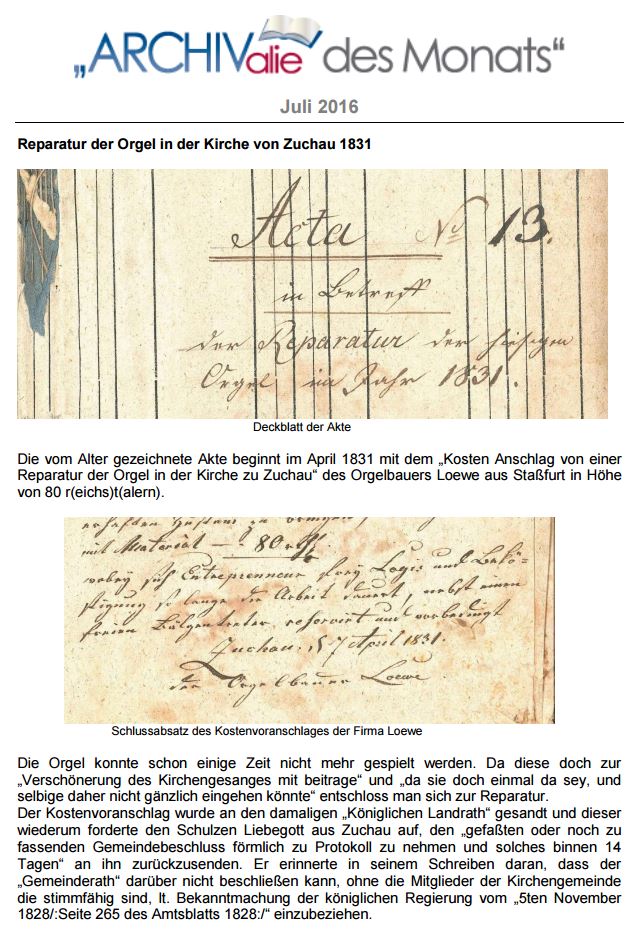 „ARCHIValie des Monats“
Juli 2016
Reparatur der Orgel in der Kirche von Zuchau 1831
Acta No 13.
in Betreff
der Reparatur der hiesigen
Orgel im Jahr 1831.
Deckblatt der Akte
Die vom Alter gezeichnete Akte beginnt im April 1831 mit dem „Kosten Anschlag von einer
Reparatur der Orgel in der Kirche zu Zuchau“ des Orgelbauers Loewe aus Staßfurt in Höhe
von 80 r(eichs)t(alern).
mit Material — 80
Entreprenneur Logis und Bekö-
stigung so lange die Arbeit dauert, nebst einen
freien Bälgentreter, reservirt und vorbedingt
Zuchau, 7 April 1831.
der Orgelbauer Loewe
Schlussabsatz des Kostenvoranschlages der Firma Loewe
Die Orgel konnte schon einige Zeit nicht mehr gespielt werden. Da diese doch zur
„Verschönerung des Kirchengesanges mit beitrage“ und „da sie doch einmal da sey, und
selbige daher nicht gänzlich eingehen könnte“ entschloss man sich zur Reparatur.
Der Kostenvoranschlag wurde an den damaligen „Königlichen Landrath“ gesandt und dieser
wiederum forderte den Schulzen Liebegott aus Zuchau auf, den „gefaßten oder noch zu
fassenden Gemeindebeschluss förmlich zu Protokoll zu nehmen und solches binnen 14
Tagen“ an ihn zurückzusenden. Er erinnerte in seinem Schreiben daran, dass der
„Gemeinderath“ darüber nicht beschließen kann, ohne die Mitglieder der Kirchengemeinde
die stimmfähig sind, lt. Bekanntmachung der königlichen Regierung vom „5ten November
1828/:Seite 265 des Amtsblatts 1828:/“ einzubeziehen.